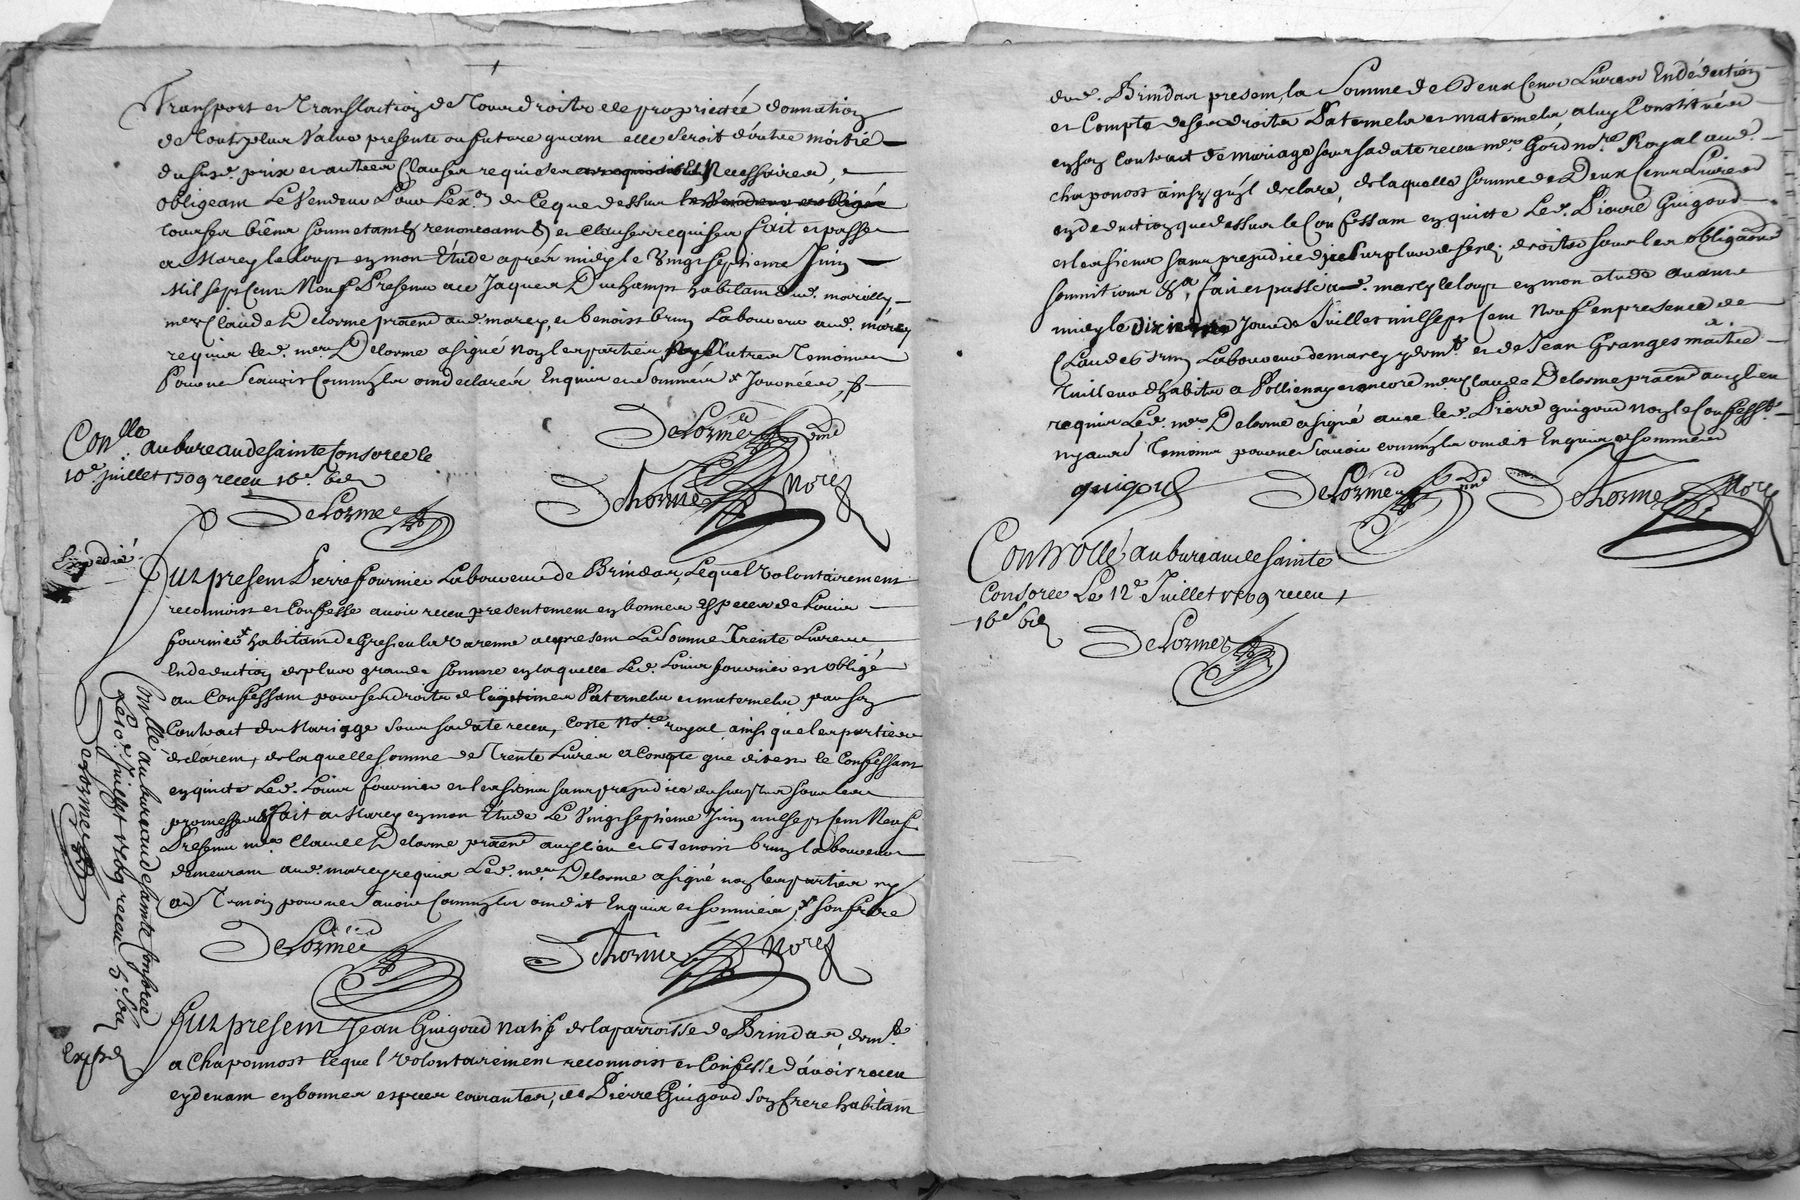 Transport et Translaction de Tous droits de proprietté donnation
de Toutte plus Value presente ou future quant elle seroit d'outre moitié
du susd. prix et autres Clauses requises et Necessaires,
obligeant Le Vendeur Pour L'ex.on de Ce que dessus
tous ses biens soumetant renonceant et clauses requises fait et passé
a Marcy le loup en mon Étude aprés midy le Vingt septieme Juin
Mil sept Cent Neuf Presents Jaques Duchamp habitant aud. marcilly
me Claude Delorme praticn aud. marcy, et benoist brun Laboureur aud. marcy
requis led. me Delorme a signé non les parties ny l'autre Temoin
Pour ne scavoir Comm'ils ont declarés Enquis et sommés
Delorme
Con.llé au bureau de sainte Consorce le
10e juillet 1709 receu 10s 6d
Delorme
Dehorme Nore
Expedié
Fut present Pierre fournier Laboureur de Brindas, Lequel volontairement
reconnoist et Confesse avoir receu presentement en bonnes especes de Louis
fournier habitant de Gresieu la Varenne a ce present La somme Trente Livres
En deduction de plus grande somme en laquelle Led. Louis fournier est obligé
au Confessant pour ses droits de legitimes Paternels et maternels par son
Contract de Mariage sous sa date receu, Coste No.re royal, ainsi que les parties
declarent, de laquelle somme de Trente Livres a Compte que dit est le Confessant
en quitte Led. Louis fournier et les siens sans prejudice du surplus sous les
promesses Fait a Marcy en mon Étude Le Vingt septieme Juin mil sept Cent Neuf
Presents me Claude Delorme praticn audit lieu et Benoist brun laboureur
demeurant aud. marcy requis Led. me Delorme a signé non les parties ny
aud Temoin pour ne scavoir Comm'ils ont dit Enquis et sommés, x son frere
Delorme
Dehorme Nore
Con.llé au bureau de sainte Consorce
Le 10e Juillet 1709 receu 5. sou
Delorme
Exp.é
Fut present Jean Guigoud natif de la parroisse de Brindas, dem.t
a Chaponnost lequel volontairement reconnoist et Confesse d'avoir receu
cy devant en bonnes especes courantes, de Pierre Guigoud son frere habitant
dud. Brindas present, la Somme de Deux Cents Livres En déduction
et Compte de ses droits Paternels et maternels a luy Constitués
en son Contract de mariage sous sa date receu me Gord no.re Royal aud.
chaponost ainsy qu'il declare, de laquelle somme de Deux Cents Livres
en deduction que dessus le Confessant en quitte Led. Pierre Guigoud
et les siens sans prejudice du surplus de ses droits sous les obligations
soumitions &a, fait et passé aud. marcy le loup en mon étude avant
midy le Dixieme Jour de Juillet mil sept Cent Neuf en presence de
Claude brun Laboureur de marcy y dem.t et de Jean Granges maitre
Tuilleur habitant a Pollienay et encore me Claude Delorme praticn audit lieu
requis Led. me Delorme a signé avec led. Pierre guigoud non le Confessant
ny aud Temoin pour ne scavoir comm'ils ont dit Enquis et sommés
guigoud
Delorme
Dehorme Nore
Controllé au bureau de sainte
Consorce Le 12e Juillet 1709 receu
16s 6d
Delorme